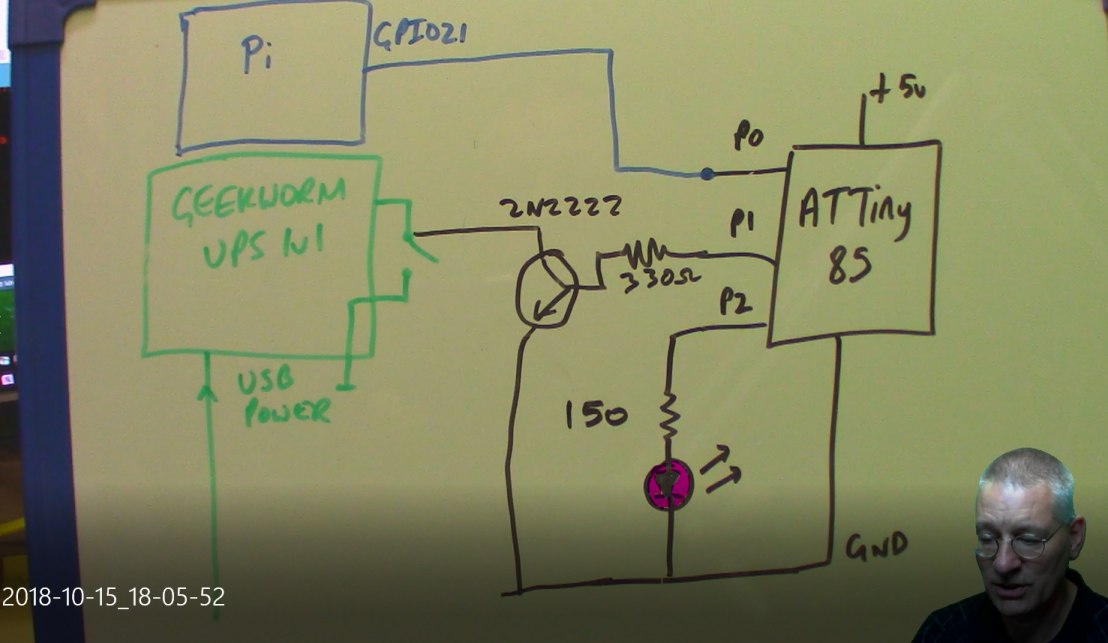 Pi
GPIO21
+5v
P0
GEEKWORM
UPS 1v1
2N2222
P1
ATTiny
85
330Ω
P2
USB
POWER
150
GND
2018-10-15_18-05-52